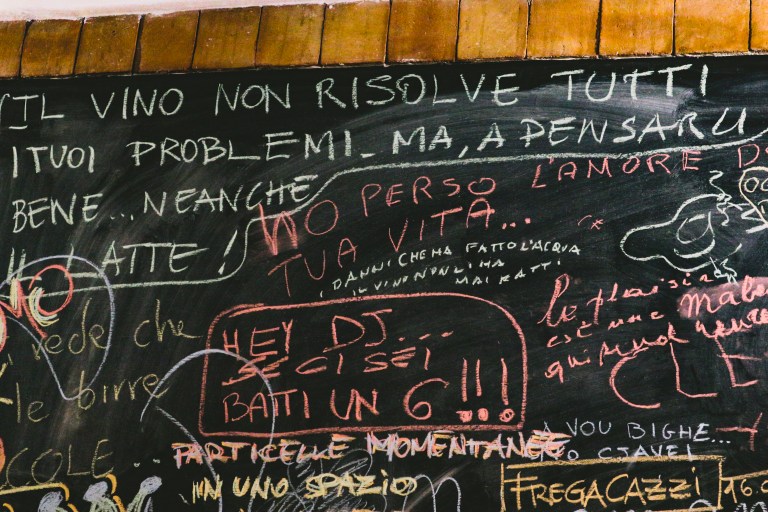 IL VINO NON RISOLVE TUTTI
I TUOI PROBLEMI. MA, A PENSARCI
BENE... NEANCHE
IL LATTE!
HO PERSO L'AMORE
TUA VITA...
I DANNI CHE HA FATTO L'ACQUA
IL VINO NON LI HA
MAI FATTI
HEY DJ....
SE CI SEI
BATTI UN 6!!!
le plaisir
est une
vede che
le birre
COLE...
PARTICELLE MOMENTANEE
IN UNO SPAZIO
A VOU BIGHE...
FREGACAZZI